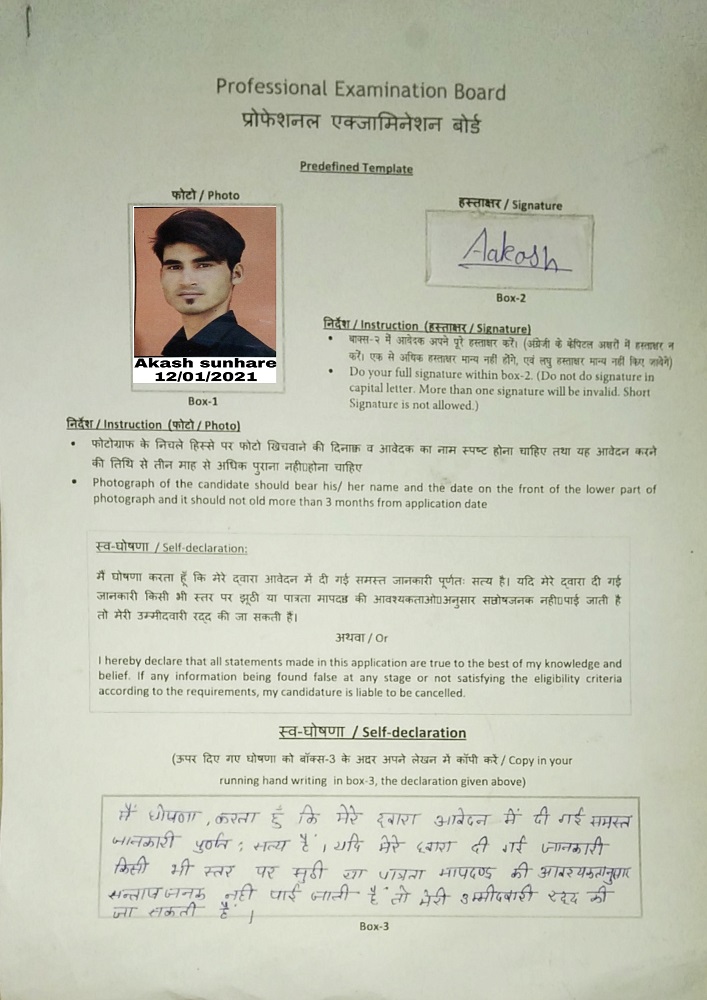 Professional Examination Board
प्रोफेशनल एक्जामिनेशन बोर्ड
Predefined Template
फोटो / Photo
Akash sunhare
12/01/2021
Box-1
हस्ताक्षर / Signature
Aakash
Box-2
निर्देश / Instruction (हस्ताक्षर / Signature)
• बाक्स-२ में आवेदक अपने पूरे हस्ताक्षर करें। (अंग्रेजी के केपिटल अक्षरों में हस्ताक्षर न
करें। एक से अधिक हस्ताक्षर मान्य नहीं होंगे, एवं लघु हस्ताक्षर मान्य नहीं किए जावेंगे)
• Do your full signature within box-2. (Do not do signature in
capital letter. More than one signature will be invalid. Short
Signature is not allowed.)
निर्देश / Instruction (फोटो / Photo)
• फोटोग्राफ के निचले हिस्से पर फोटो खिचवाने की दिनाक व आवेदक का नाम स्पष्ट होना चाहिए तथा यह आवेदन करने
की तिथि से तीन माह से अधिक पुराना नही▯होना चाहिए
• Photograph of the candidate should bear his/ her name and the date on the front of the lower part of
photograph and it should not old more than 3 months from application date
स्व-घोषणा / Self-declaration:
मैं घोषणा करता हूँ कि मेरे द्वारा आवेदन में दी गई समस्त जानकारी पूर्णतः सत्य है। यदि मेरे द्वारा दी गई
जानकारी किसी भी स्तर पर झूठी या पात्रता मापदण्ड की आवश्यकताओ▯अनुसार सन्तोषजनक नही▯पाई जाती है
तो मेरी उम्मीदवारी रद्द की जा सकती हैं।
अथवा / Or
I hereby declare that all statements made in this application are true to the best of my knowledge and
belief. If any information being found false at any stage or not satisfying the eligibility criteria
according to the requirements, my candidature is liable to be cancelled.
स्व-घोषणा / Self-declaration
(ऊपर दिए गए घोषणा को बॉक्स-3 के अदर अपने लेखन में कॉपी करें / Copy in your
running hand writing in box-3, the declaration given above)
मैं घोषणा, करता हुँ कि मेरे द्वारा आवेदन में दी गई समस्त
जानकारी पुर्णत: सत्य है। यदि मेरे द्वारा दी गई जानकारी
किसी भी स्तर पर झुठी या पात्रता मापदण्ड की आवश्यकतानुसार
सन्तोषजनक नही पाई जाती है तो मेरी उम्मीदवारी रद्द की
जा सकती है।
Box-3